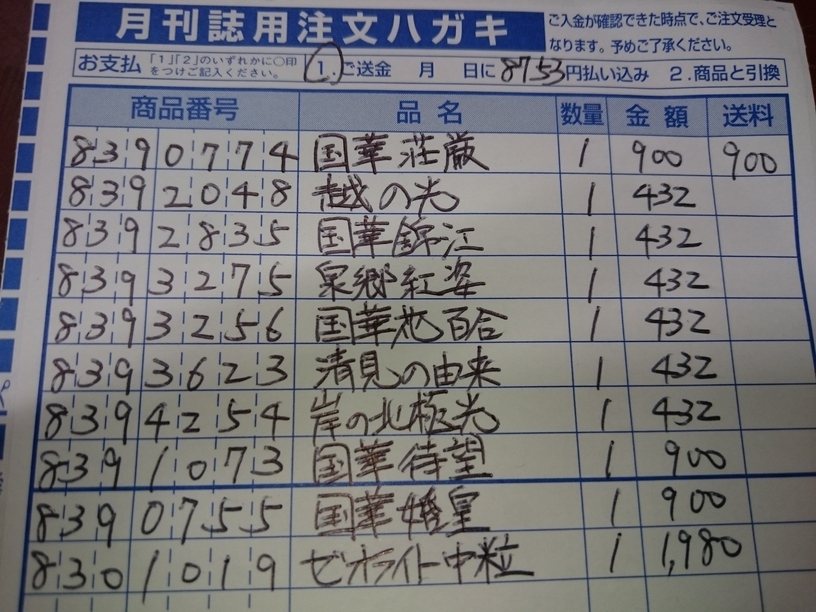 月刊誌用注文ハガキ
ご入金が確認できた時点で、ご注文受理と
なります。予めご了承ください。
お支払 「1」「2」のいずれかに〇印をつけご記入ください。 1.ご送金 月 日に8753円払い込み 2.商品と引換
商品番号 品名 数量 金額 送料
8390774 国華荘厳 1 900 900
8392048 越の光 1 432
8392835 国華錦江 1 432
8393275 泉郷紅姿 1 432
8393256 国華花百合 1 432
8393623 清見の由来 1 432
8394254 岸の北極光 1 432
8391073 国華待望 1 900
8390755 国華婚皇 1 900
8301019 ゼオライト中粒 1 1,980